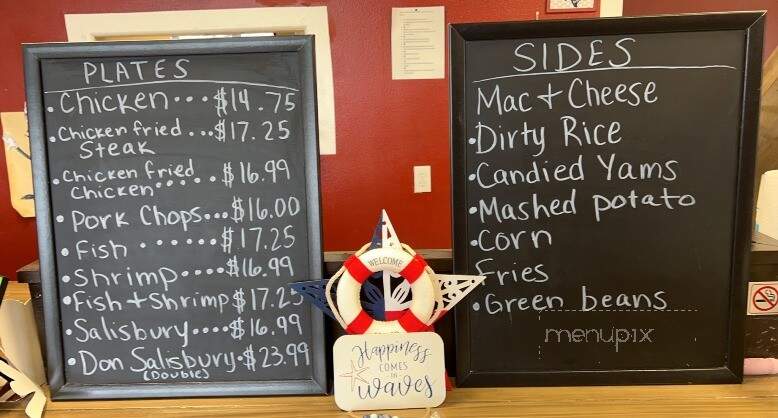 PLATES
• Chicken... $14.75
• Chicken fried...$17.25
Steak
• Chicken fried.. $16.99
Chicken...
• Pork Chops...$16.00
• Fish ......$17.25
• Shrimp....$16.99
• Fish + Shrimp $17.25
• Salisbury....$16.99
• Don Salisbury.$23.99
(Double)
SIDES
Mac + Cheese
• Dirty Rice
• Candied Yams
• Mashed potato
• Corn
Fries
• Green beans
menupix
WELCOME
Happiness
COMES
IN
waves